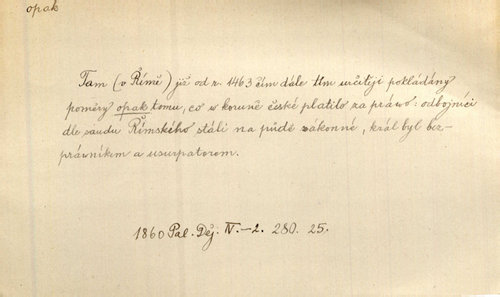 opak
Tam (v Římě) již od r. 1463 čím dále tím určitěji pokládány
poměry opak tomu, co w koruně české platilo za práwo: odbojníci
dle saudu Římského stáli na půdě zákonné, král byl bez-
práwníkem a usurpatorem.
1860 Pal. Děj. IV.-2. 280. 25.